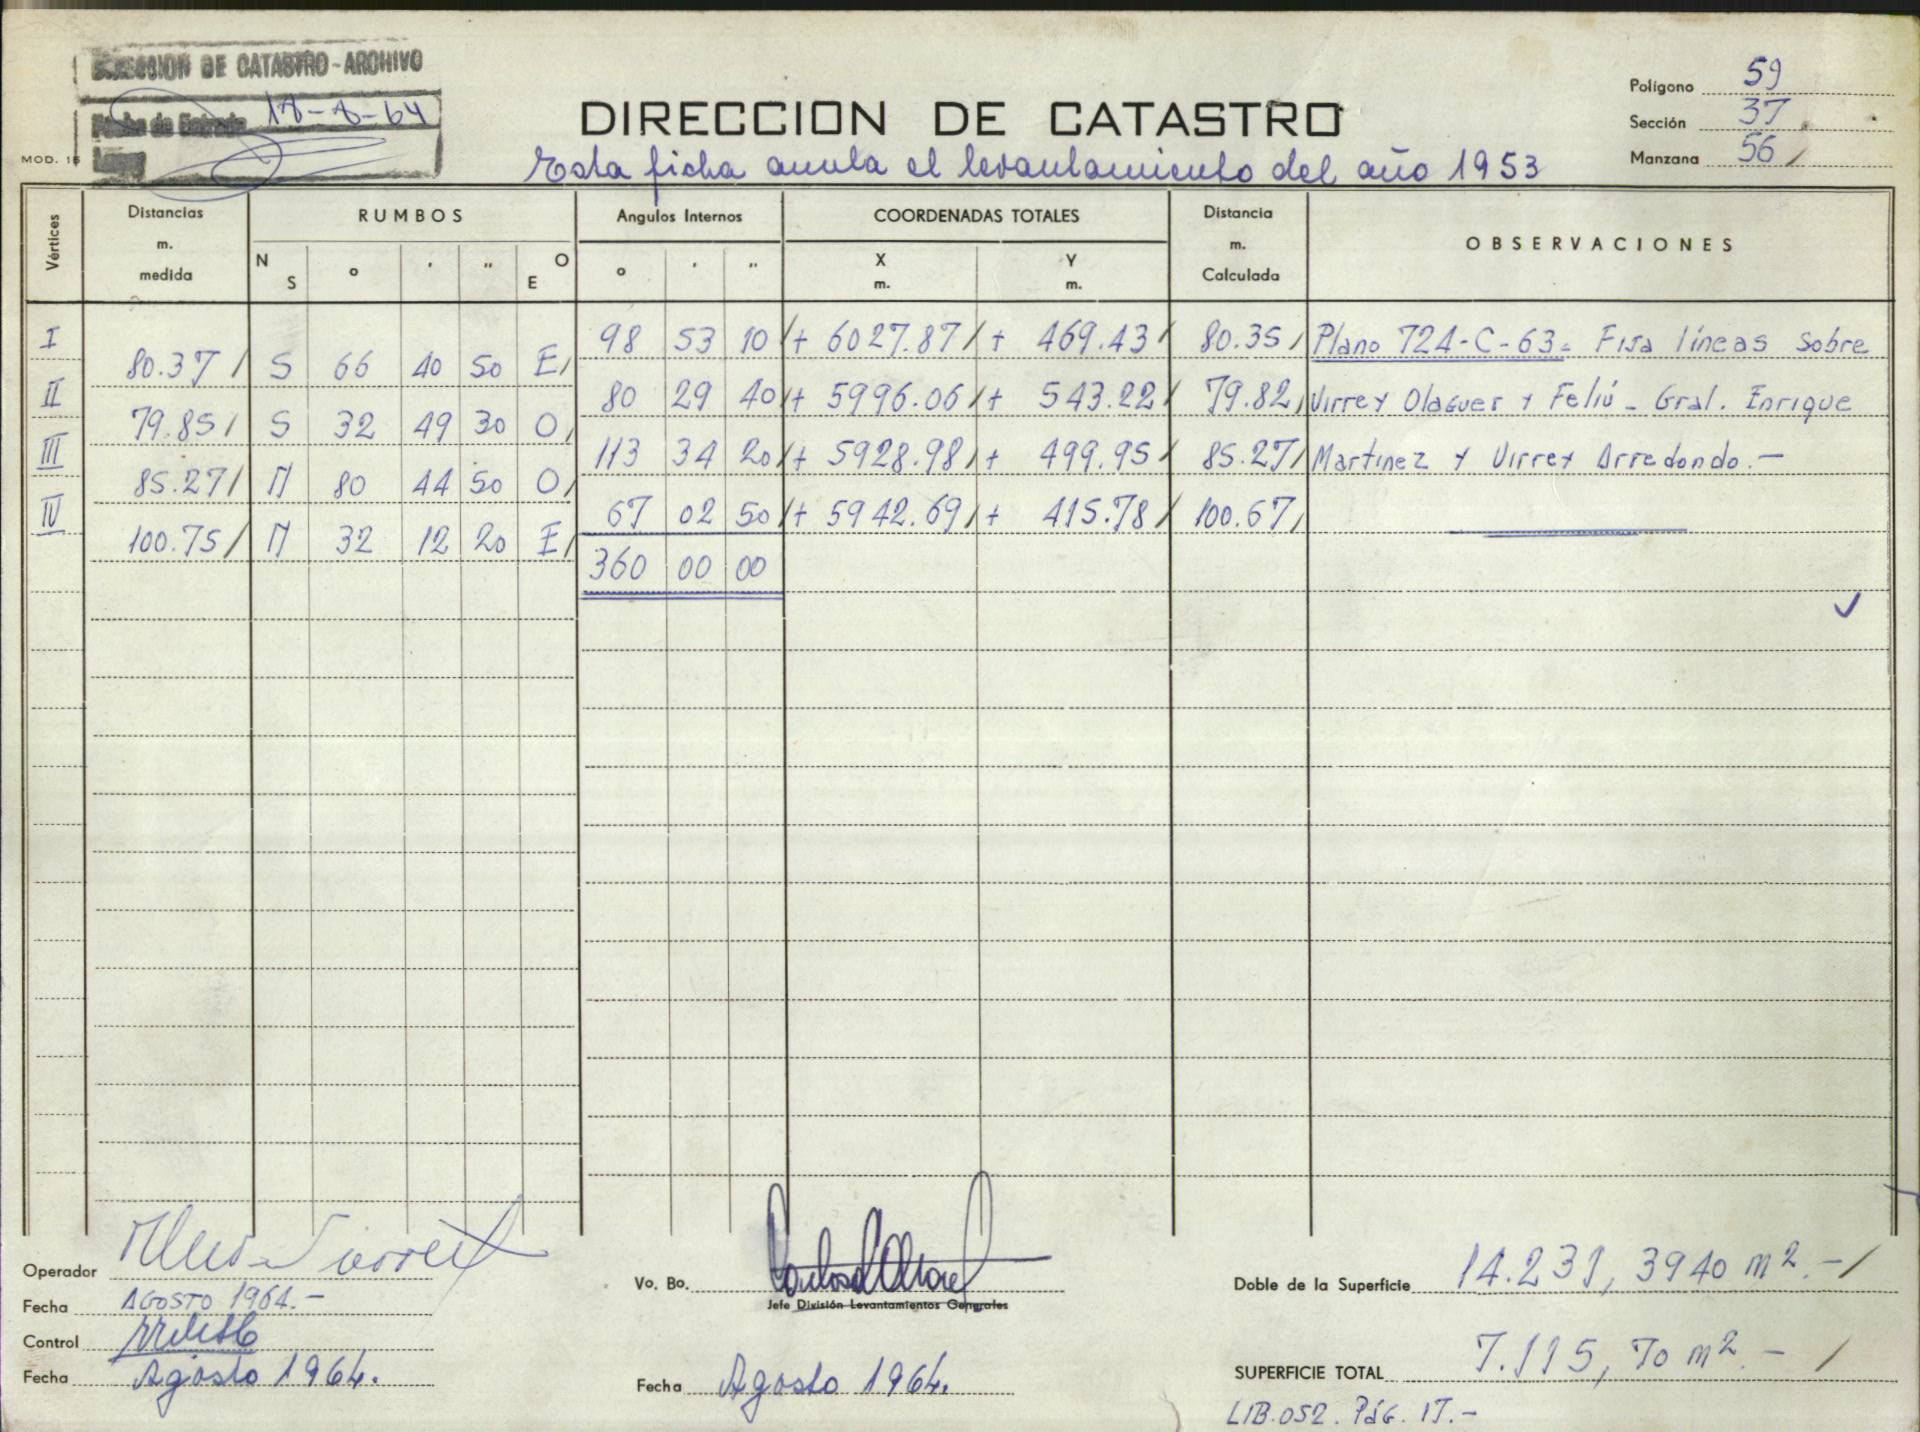 DIRECCION DE CATASTRO - ARCHIVO
Fecha de Entrada 18-8-64
MOD. 15
DIRECCION DE CATASTRO
Esta ficha anula el levantamiento del año 1953
Polígono 59
Sección 37
Manzana 56
Vértices
Distancias m. medida
RUMBOS
N S ° ' " O E
Angulos Internos
° ' "
COORDENADAS TOTALES
X m. Y m.
Distancia m. Calculada
OBSERVACIONES
I 98 53 10 + 6027.87 + 469.43 80.35 Plano 724-C-63- Fija líneas Sobre
80.37 S 66 40 50 E
II 80 29 40 + 5996.06 + 543.22 79.82 Virrey Olaguer y Feliú - Gral. Enrique
79.85 S 32 49 30 O
III 113 34 20 + 5928.98 + 499.95 85.27 Martinez y Virrey Arredondo.-
85.27 N 80 44 50 O
IV 67 02 50 + 5942.69 + 415.78 100.67
100.75 N 32 12 20 E
360 00 00
Operador
Fecha AGOSTO 1964.-
Control
Fecha Agosto 1964.
Vo. Bo.
Jefe División Levantamientos Generales
Fecha Agosto 1964.
Doble de la Superficie 14.231,3940 m².-
SUPERFICIE TOTAL 7.115,70 m².-
LIB.052. Pág. 17.-